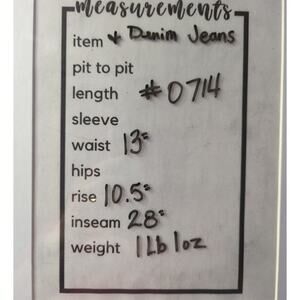 measurements
item * Denim Jeans
pit to pit
length #0714
sleeve
waist 13"
hips
rise 10.5"
inseam 28"
weight 1 Lb 1 oz